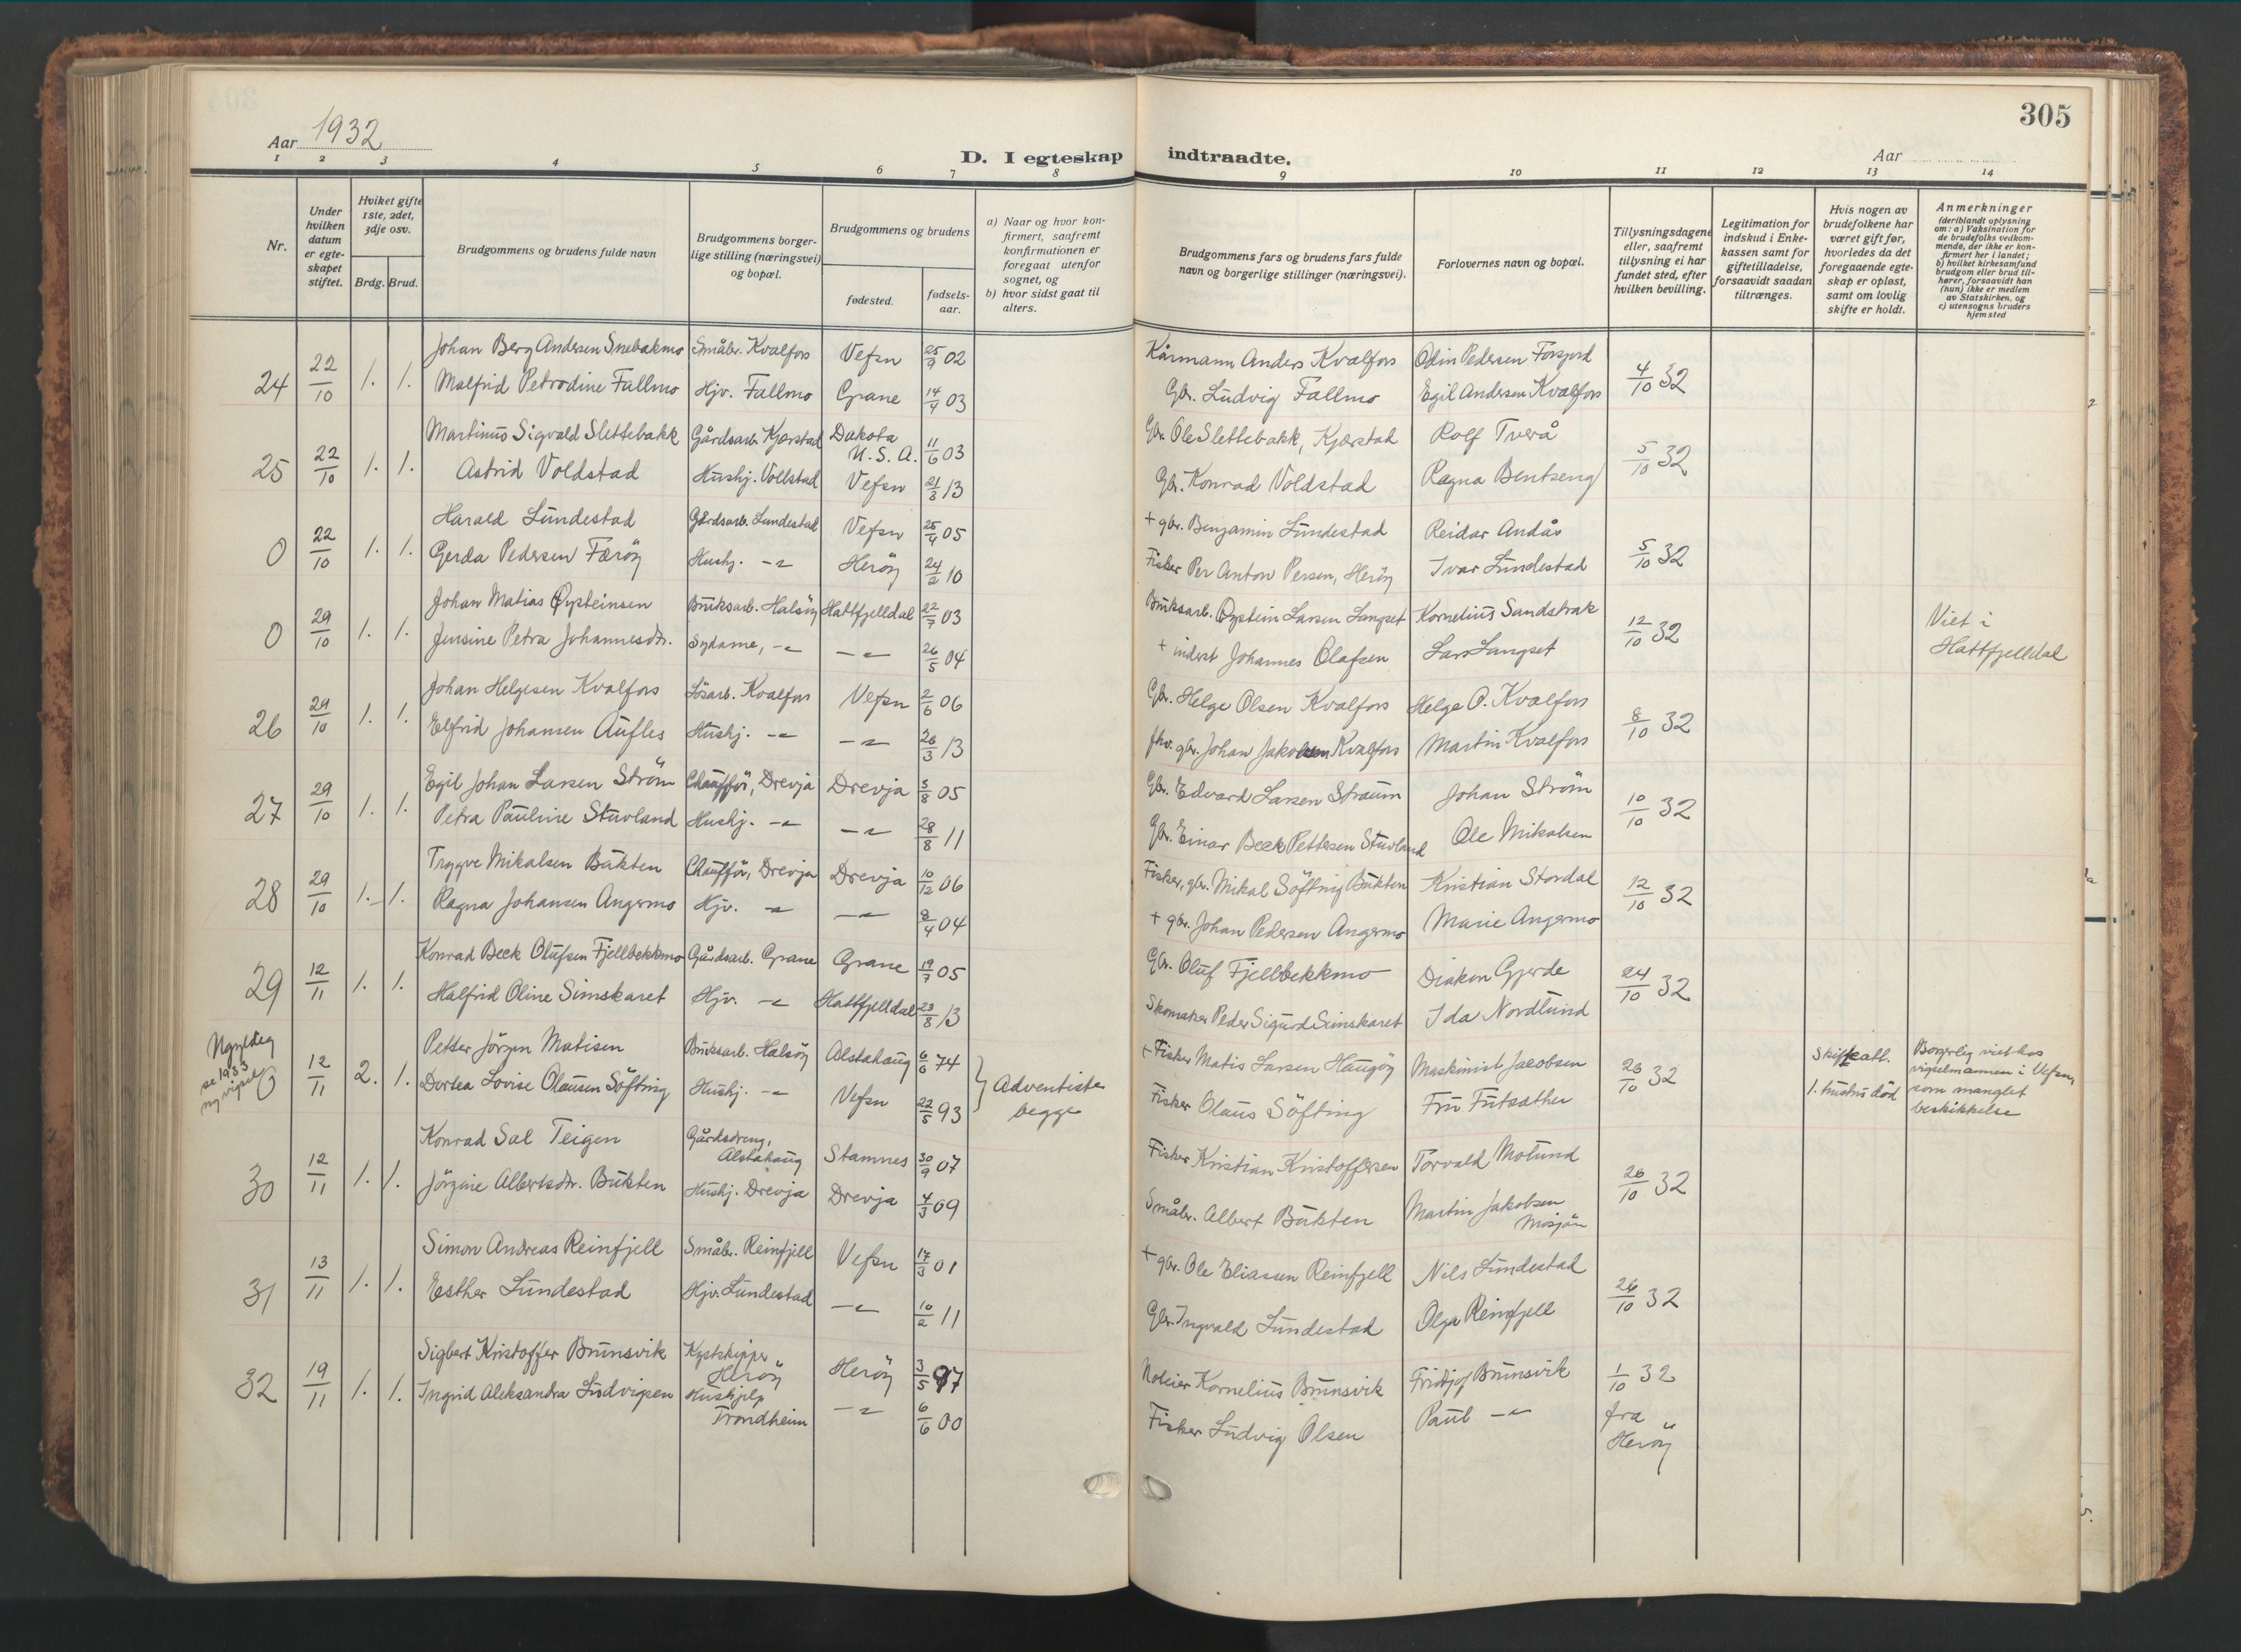 305
Aar 1932
D. I egteskap indtraadte.
Aar
1 2 3 4 5 6 7 8 9 10 11 12 13 14
Nr.
Under hvilken datum er egte-skapet stiftet.
Hviket gifte 1ste, 2det, 3dje osv.
Brdg. Brud.
Brudgommens og brudens fulde navn
Brudgommens borger-lige stilling (næringsvei) og bopæl.
Brudgommens og brudens
fødested.
fødsels-aar.
a) Naar og hvor kon-firmert, saafremt konfirmationen er foregaat utenfor sognet, og
b) hvor sidst gaat til alters.
Brudgommens fars og brudens fars fulde navn og borgerlige stillinger (næringsvei).
Forlovernes navn og bopæl.
Tillysningsdagene eller, saafremt tillysning ei har fundet sted, efter hvilken bevilling.
Legitimation for indskud i Enke-kassen samt for giftetilladelse, forsaavidt saadan tiltrænges.
Hvis nogen av brudefolkene har været gift før, hvorledes da det foregaaende egte-skap er opløst, samt om lovlig skifte er holdt.
Anmerkninger
(deriblandt oplysning om: a) Vaksination for de brudefolks vedkom-mende, der ikke er kon-firmert her i landet; b) hvilket kirkesamfund brudgom eller brud til-hører, forsaavidt han (hun) ikke er medlem av Statskirken, og c) utensogns bruders hjemsted
24 22/10 1. 1. Johan Berg Andersen Snebakmo Småbr. Kvalfors Vefsn 25/9 02 Kårmann Anders Kvalfors Odin Pedersen Forsjord 4/10 32
Malfrid Petrodine Fallmo Hjv. Fallmo Grane 14/4 03 Gbr. Ludvig Fallmo Egil Andersen Kvalfors
25 22/10 1. 1. Martinus Sigvald Slettebakk Gårdsarb. Kjærstad Dakota U.S.A. 11/6 03 Gbr. Ole Slettebakk, Kjærstad Rolf Tverå 5/10 32
Astrid Voldstad Hushj. Vollstad Vefsn 21/3 13 Gbr. Konrad Voldstad Ragna Bentseng
0 22/10 1. 1. Harald Lundestad Gårdsarb. Lundestad Vefsn 25/4 05 + gbr. Benjamin Lundestad Reidar Andås 5/10 32
Gerda Pedersen Færöy Hushj. -"- Heröy 24/2 10 Fisker Per Anton Persen, Heröy Ivar Lundestad
0 29/10 1. 1. Johan Matias Øysteinsen Bruksarb. Halsöy Hattfjelldal 22/7 03 Bruksarb. Øystein Larsen Langset Kornelius Sandstrak 12/10 32 Viet i
Jensine Petra Johannesdtr. Sydame, -"- -"- 26/5 04 + inderst Johannes Olafsen Lars Langset Hattfjelldal
26 29/10 1. 1. Johan Helgesen Kvalfors Lösarb. Kvalfors Vefsn 2/6 06 Gbr. Helge Olsen Kvalfors Helge O. Kvalfors 8/10 32
Elfrid Johansen Aufles Hushj. -"- -"- 26/3 13 fhv. gbr. Johan Jakobsen Kvalfors Martin Kvalfors
27 29/10 1. 1. Egil Johan Larsen Ström Chaufför, Drevja Drevja 5/8 05 Gbr. Edvard Larsen Straum Johan Ström 10/10 32
Petra Pauline Stuvland Hushj. -"- -"- 28/8 11 Gbr. Einar Beck Pettersen Stuvland Ole Mikalsen
28 29/10 1. 1. Trygve Mikalsen Bukten Chaufför, Drevja Drevja 10/12 06 Fisker, gbr. Mikal Söfting Bukten Kristian Stordal 12/10 32
Ragna Johansen Angermo Hjv. -"- -"- 8/4 04 + gbr. Johan Pedersen Angermo Marie Angermo
29 12/11 1. 1. Konrad Beck Olufsen Fjellbekkmo Gårdsarb. Grane Grane 19/7 05 Gbr. Oluf Fjellbekkmo Diakon Gjerde 24/10 32
Halfrid Oline Simskaret Hjv. -"- Hattfjelldal 23/8 13 Skomaker Peder Sigurd Simskaret Ida Nordlund
Ugyldig
se 1933
ny vigsel
0 12/11 2. 1. Petter Jörgen Matisen Bruksarb. Halsöy Alstahaug 6/6 74 + Fisker Matis Larsen Haugöy Maskinist Jacobsen 26/10 32 Skifteatt.
Dortea Lovise Olausen Söfting Hushj. -"- Vefsn 22/5 93 Fisker Olaus Söfting Fru Fntsæther 1. hustru död
Adventister
begge
Borgerlig viet hos
vigselmannen i Vefsn,
som manglet
beskikkelse
30 12/11 1. 1. Konrad Sal Teigen Gårdsdreng, Alstahaug Stamnes 30/9 07 Fisker Kristian Kristoffersen Torvald Motund 26/10 32
Jörgine Albertsdtr. Bukten Hushj. Drevja Drevja 4/3 09 Småbr. Albert Bukten Martin Jakobsen Mosjöen
31 13/11 1. 1. Simon Andreas Reinfjell Småbr. Reinfjell Vefsn 17/3 01 + gbr. Ole Eliassen Reinfjell Nils Lundestad 26/10 32
Esther Lundestad Hjv. Lundestad -"- 10/2 11 Gbr. Ingvald Lundestad Olga Reinfjell
32 19/11 1. 1. Sigbert Kristoffer Brunsvik Kystskipper Heröy Heröy 3/5 97 Noteier Kornelius Brunsvik Fridtjof Brunsvik 1/10 32
Ingrid Aleksandra Ludvigsen Hushjelp Trondheim -"- 6/6 00 Fisker Ludvig Olsen Paul -"- fra
Heröy